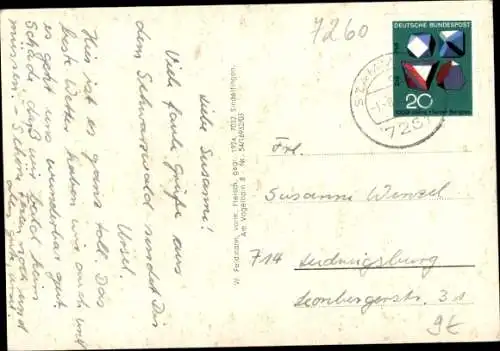 7260
DEUTSCHE BUNDESPOST
20
Liebe Susanne!
Viele faule Grüße aus
dem Schwarzwald sendet Dir
Ursel.
Hier ist es ganz toll. Das
beste Wetter haben wir auch und
es geht uns wunderbar gut.
Schade, daß wir bald heim
müssen. - Schöne Ferien noch und
alles gute
W. Feldmann, vorm. Fleisch, gegr. 1924, 7032 Sindelfingen,
Am Vogelhain 8
Frl.
Susanne Wenzel
714 Ludwigsburg
Leonbergerstr. 31